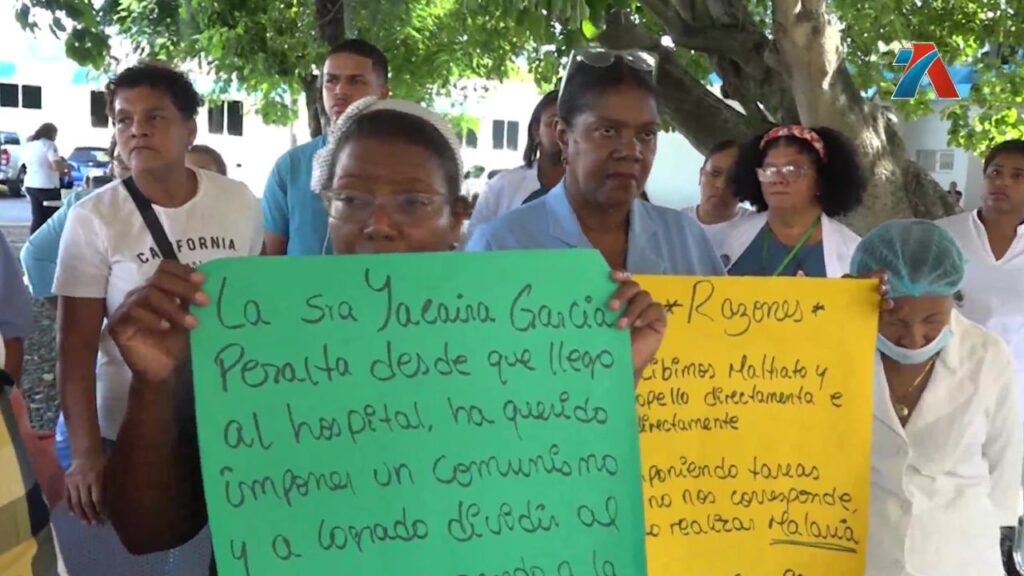 CALIFORNIA
La Sra Yacaira Garcia
Peralta desde que llego
al hospital, ha querido
imponer un comunismo
y a logrado dividir al
a la
*Razones*
cibimos Maltrato y
opello directamenta e
directamente
mponiendo tareas
no nos corresponde,
o realizar Malaria